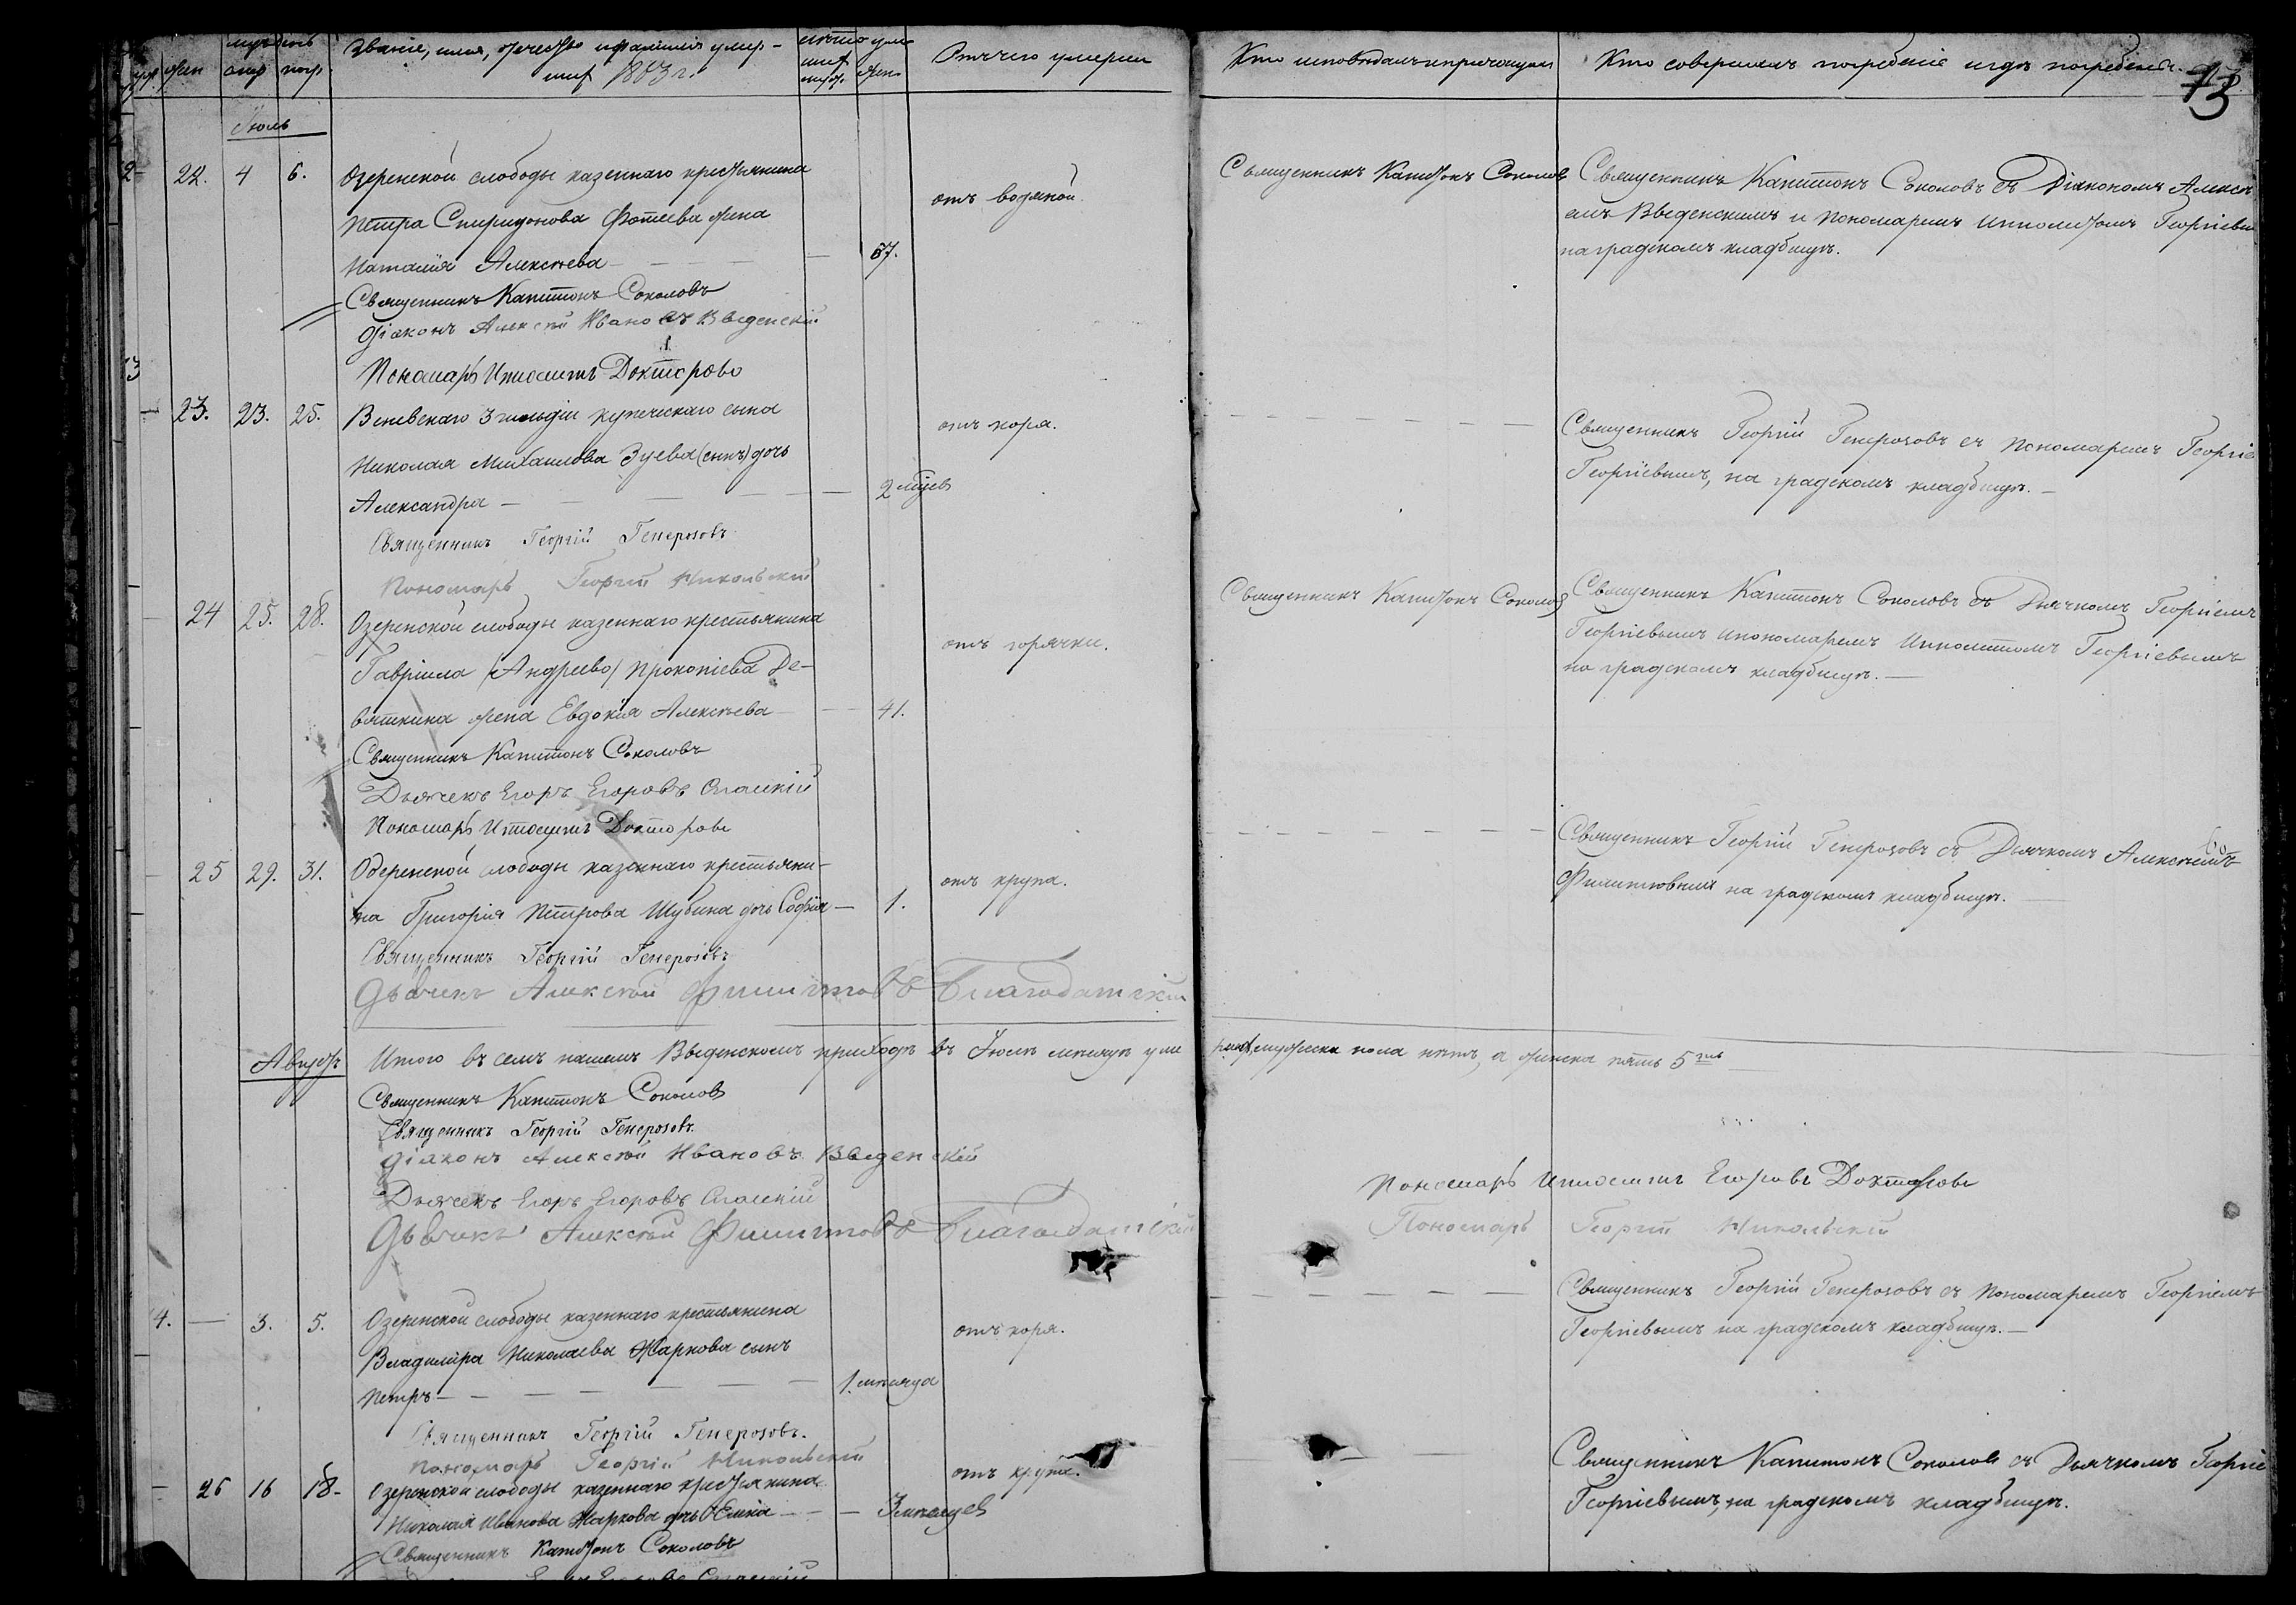 Званіе, имя, отчество и фамилія умер-
ших 1883 г.
Отъ чего умерли
Кто исповѣдалъ и причащалъ
Кто совершалъ погребеніе и гдѣ погребены.
73
Іюль
22. 4 6. Озеренской слободы казеннаго крестьянина
Петра Спиридонова Фотеева жена
Наталія Алексѣева — 67.
отъ водяной.
Священникъ Капитонъ Соколовъ
Священникъ Капитонъ Соколовъ съ Діакономъ Алексѣ
емъ Введенскимъ и пономаремъ Ипполитомъ Георгіевы
на градскомъ кладбищѣ.
Священникъ Капитонъ Соколовъ
Діаконъ Алексѣй Ивановъ Введенскій
Пономарь Иполитъ Докторовъ
— 23. 23. 25. Веневскаго 3 гильдіи купеческаго сына
Николая Михаилова Зуева (сынъ) дочь
Александра — 2 мѣсяцев
отъ коря.
Священникъ Георгій Генерозовъ съ пономаремъ Георгіе
Георгіевымъ, на градскомъ кладбищѣ. —
Священникъ Георгій Генерозовъ
Пономарь Георгій Никольскій
— 24 25. 28. Озеренской слободы казеннаго крестьянина
Гавріила (Андреево) Прокопіева Де-
вяткина жена Евдокія Алексѣева — 41.
отъ горячки.
Священникъ Капитонъ Соколов
Священникъ Капитонъ Соколовъ съ Дьячкомъ Георгіемъ
Георгіевымъ и пономаремъ Ипполитомъ Георгіевымъ
на градскомъ кладбищѣ. —
Священникъ Капитонъ Соколовъ
Дьячекъ Егоръ Егоровъ Спаскій
Пономарь Иполитъ Докторовъ
— 25 29. 31. Озеренской слободы казеннаго крестьяни-
на Григорія Петрова Шубина дочь Софія — 1.
отъ крупа.
Священникъ Георгій Генерозовъ съ Дьячкомъ Алексѣемъ
Филиповымъ на градскомъ кладбищѣ.
Священникъ Георгій Генерозовъ
Дьячекъ Алексѣй Филиповъ Благодатскій
Августъ
Итого въ семъ нашемъ Введенскомъ приходѣ въ Іюлѣ мѣсяцѣ уме
рших мужеска пола нѣтъ, а женска пять 5
Священникъ Капитонъ Соколовъ
Священникъ Георгій Генерозовъ
Діаконъ Алексѣй Ивановъ Введенскій
Дьячекъ Егоръ Егоровъ Спаскій
Дьячекъ Алексѣй Филиповъ Благодатскій
Пономарь Иполитъ Егоровъ Докторовъ
Пономарь Георгій Никольскій
4. — 3. 5. Озеренской слободы казеннаго крестьянина
Владиміра Николаева Жаркова сынъ
Петръ — 1. мѣсяца
отъ коря.
Священникъ Георгій Генерозовъ съ пономаремъ Георгіемъ
Георгіевымъ на градскомъ кладбищѣ. —
Священникъ Георгій Генерозовъ.
Пономарь Георгій Никольскій
— 26 16 18. Озеренской слободы казеннаго крестьянина
Николая Иванова Жаркова дочь — 3 мѣсяцев
отъ крупа.
Священникъ Капитонъ Соколовъ съ Дьячкомъ Георгіе
Георгіевымъ, на градскомъ кладбищѣ.
Священникъ Капитонъ Соколовъ